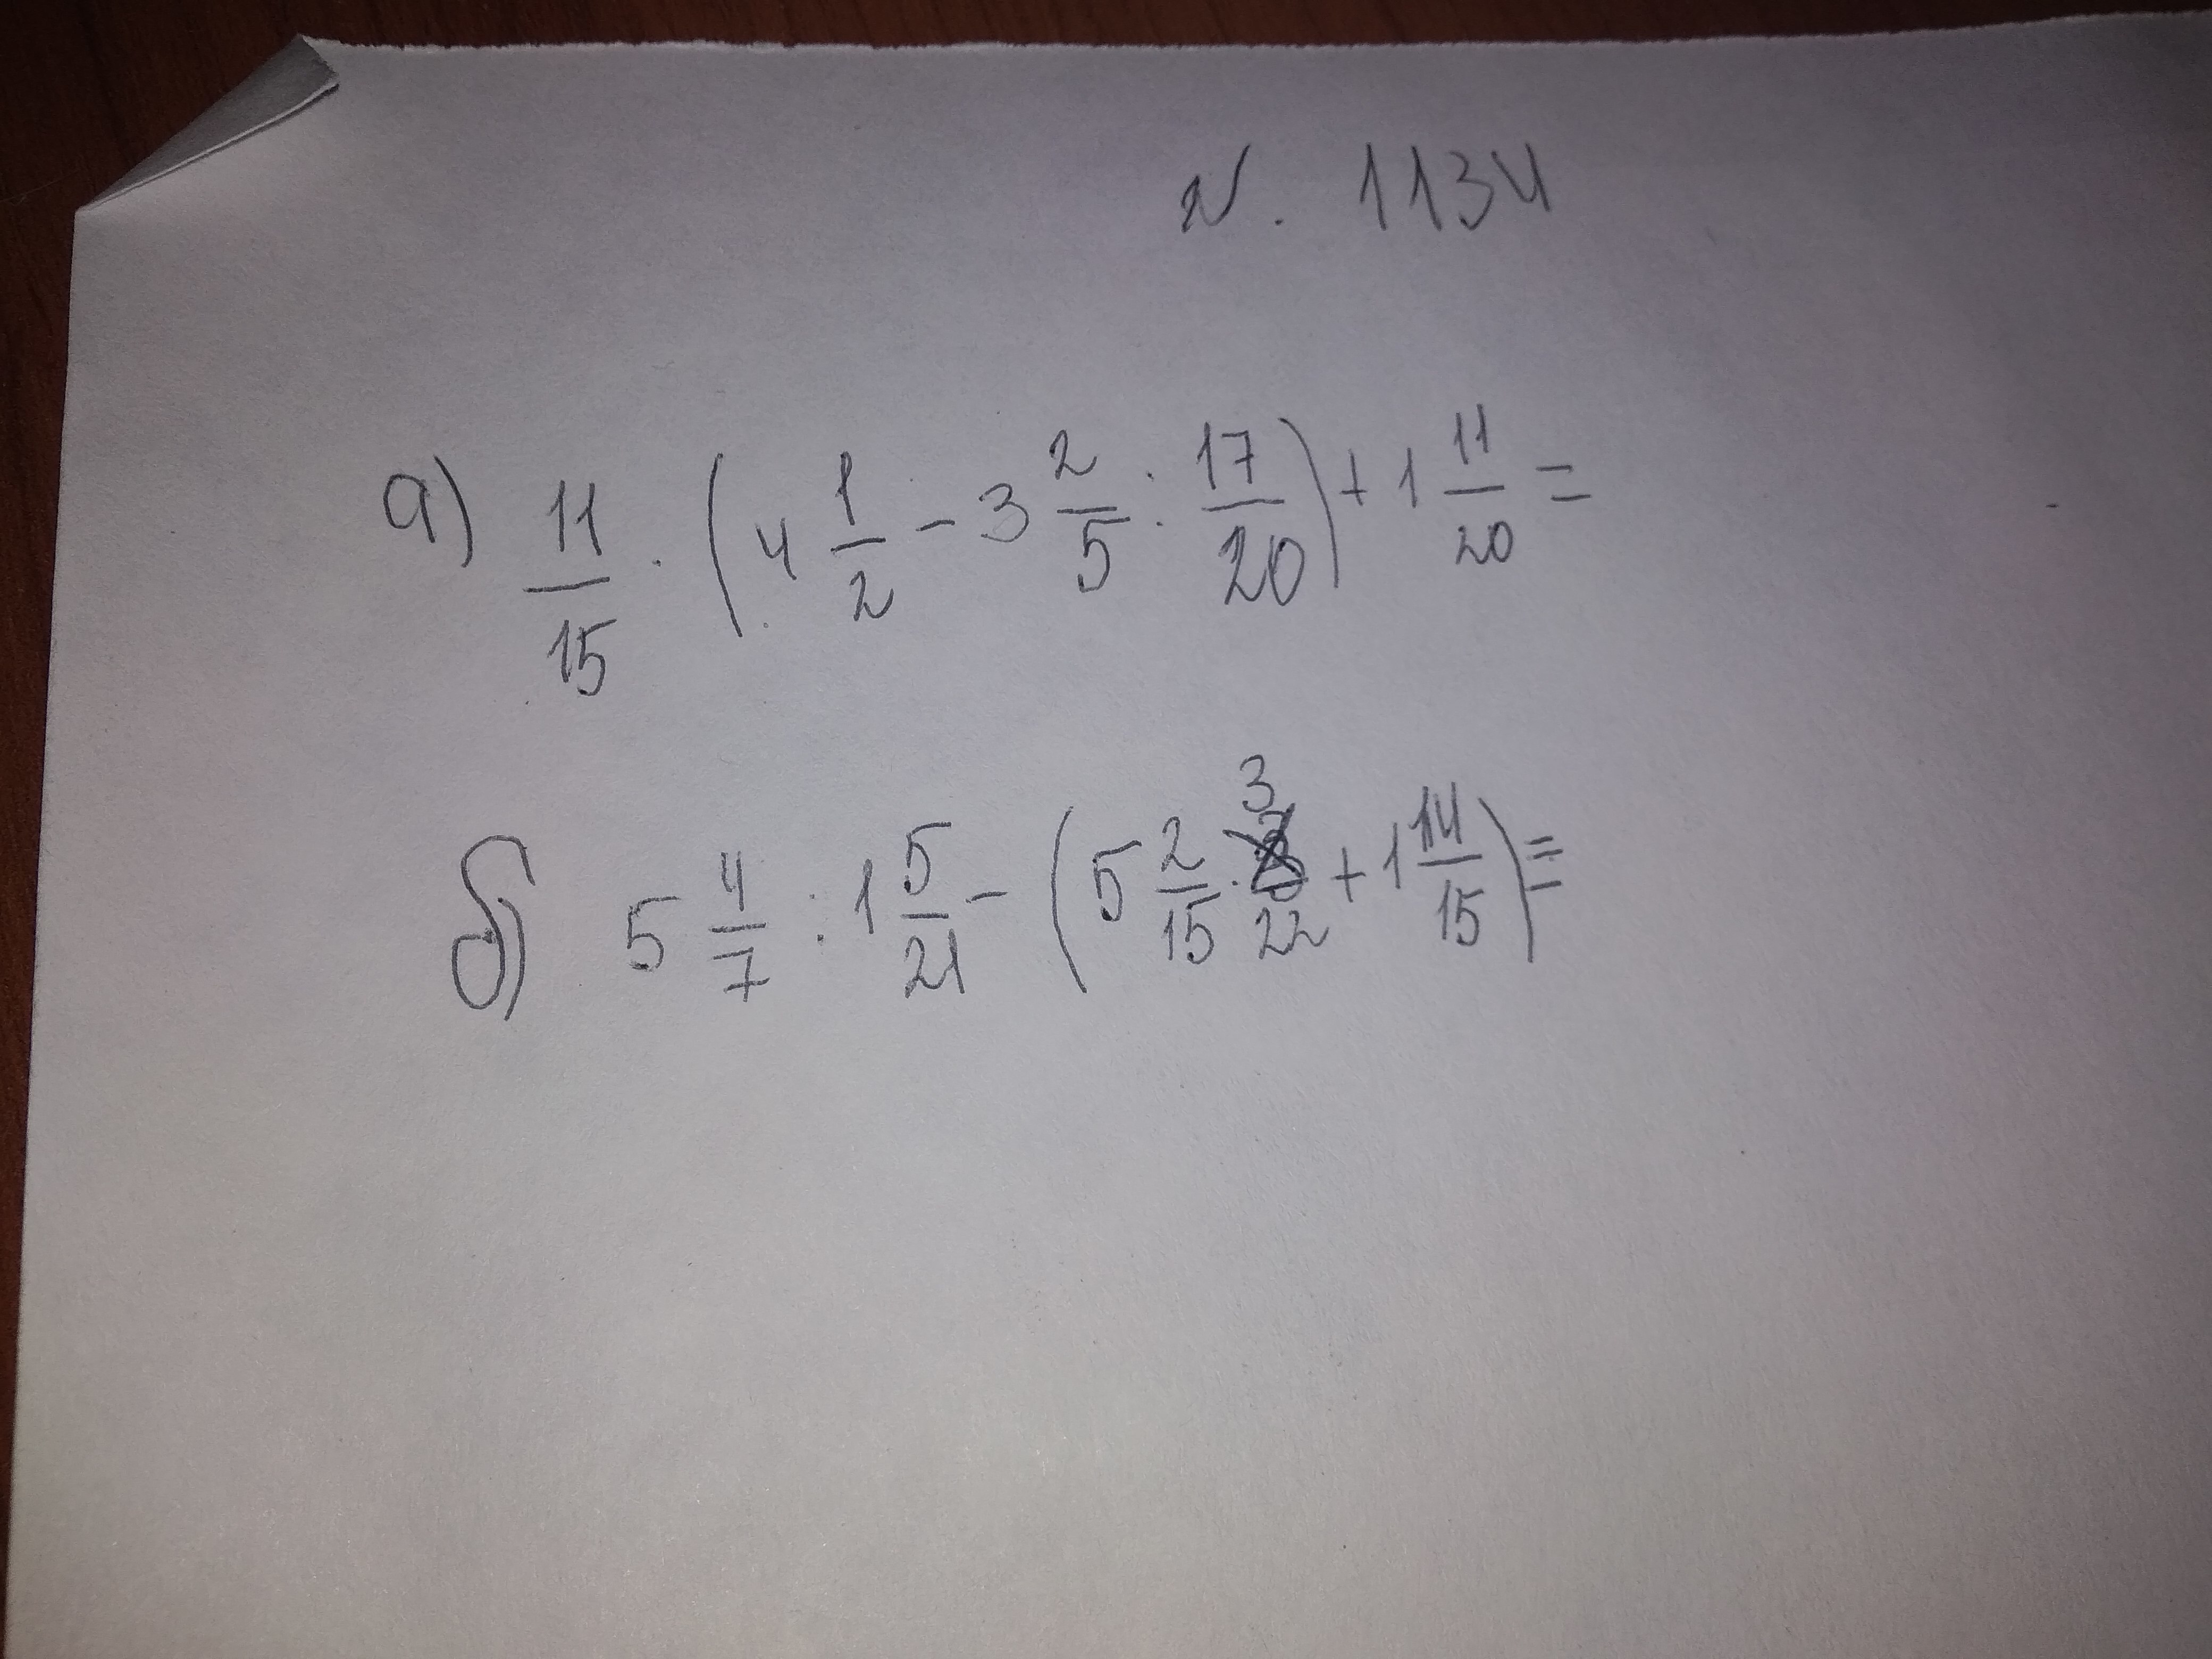 N. 1134
а) 11/15 · (4 1/2 - 3 2/5 : 17/20) + 1 11/20 =
б) 5 4/7 : 1 5/21 - (5 2/15 · 3/22 + 1 14/15) =